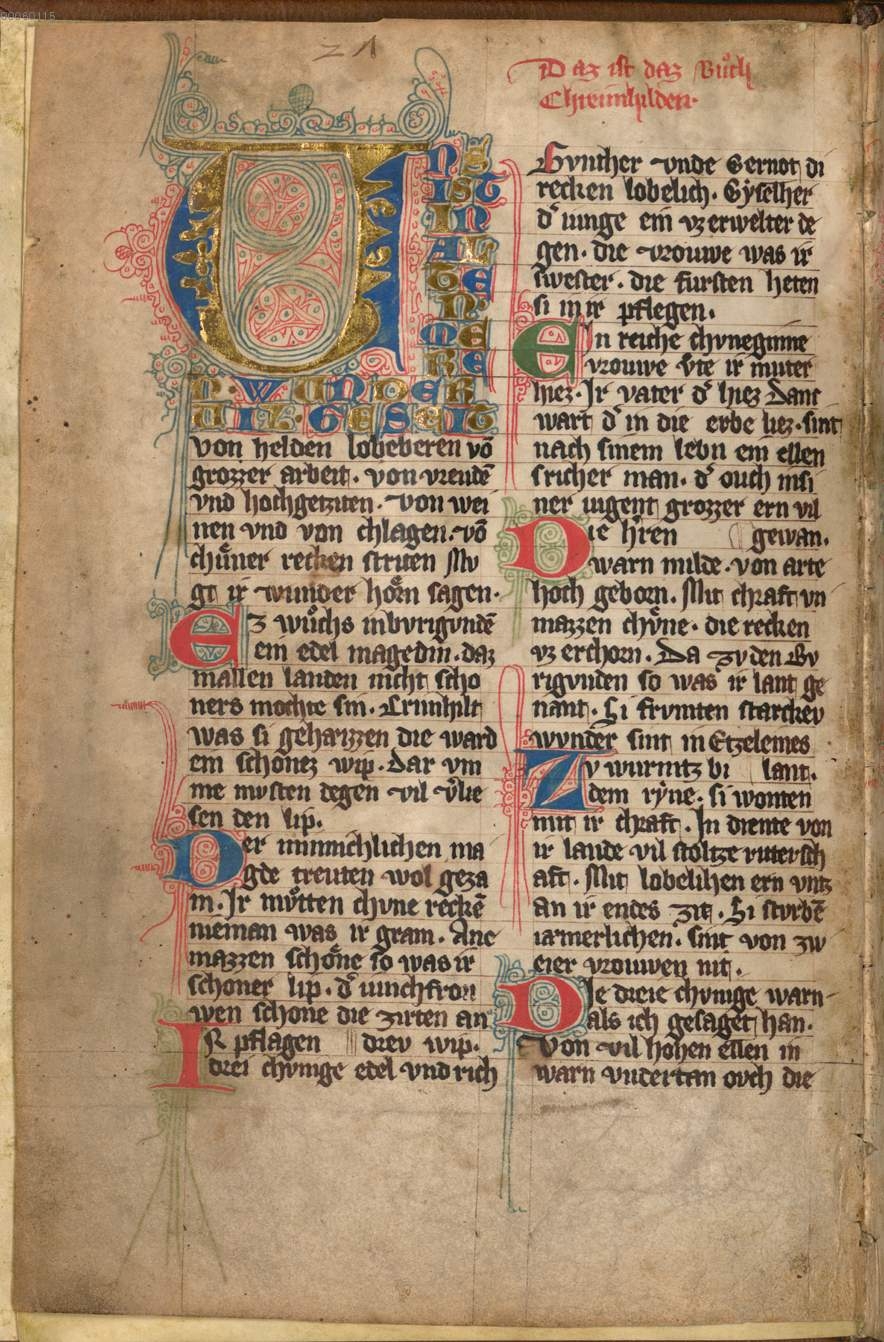 00060115
21
Daz ist daz Bůch
Chreimhilden.
VNS
IST
IN
AL
TE
N
ME
RE
N. WUNDER
UIL. GESEIT
von helden lobeberen vō
grozzer arbeit. von vreudē
vnd hochgetziten. von wei
nen vnd von chlagen. vō
chůner recken striten Mv
gt ir wunder hôrn sagen.
EZ wůchs inbvrigvndē
ein edel magedin. daz
in allen landen nicht scho
ners mochte sin. Crimhilt
was si geheizzen die ward
ein schonez wip. Dar vm
me mvsten degen vil v̾lie
sen den lip.
Der minnichlichen ma
gde treuten wol geza
m. Ir mv̊tten chvne reckē
nieman was ir gram. Ane
mazzen schône so was ir
schoner lip. d̾ iunchfron
wen schone die zirten an
IR pflagen drev wip.
drei chvnige edel vnd rich
Gvnther vnde Gernot di
recken lobelich. Gẏselher
d̾ iunge ein vz erwelter de
gen. die vrouwe was ir
swester. die fursten heten
si in ir pflegen.
Ein reiche chvneginne
vrouwe v̊te ir muter
hiez. Ir vater d̾ hiez Dant
wart d̾ in die erbe liez. sint
nach sinem lebn ein ellen
sricher man. d̾ ouch insi
ner iugent grozzer ern vil
Die h̾ren gewan.
warn milde. von arte
hoch geborn. Mit chraft vn
mazzen chv̊ne. die recken
vz erchorn. Da zv den Bv
rigvnden so was ir lant ge
nant. Si frvmten starckev
wvnder sint in Etzelemes
Zv wurmtz bi lant.
dem rẏne. si wonten
mit ir chraft. In diente von
ir lande vil stoltze rittersch
aft. Mit lobelihen ern vntz
an ir endes zit. Si sturbē
iamerlichen. sint von zw
eier vrouwen nit.
Die dreie chvnige warn
als ich gesaget han.
Von vil hohen ellen in
warn vndertan ovch die